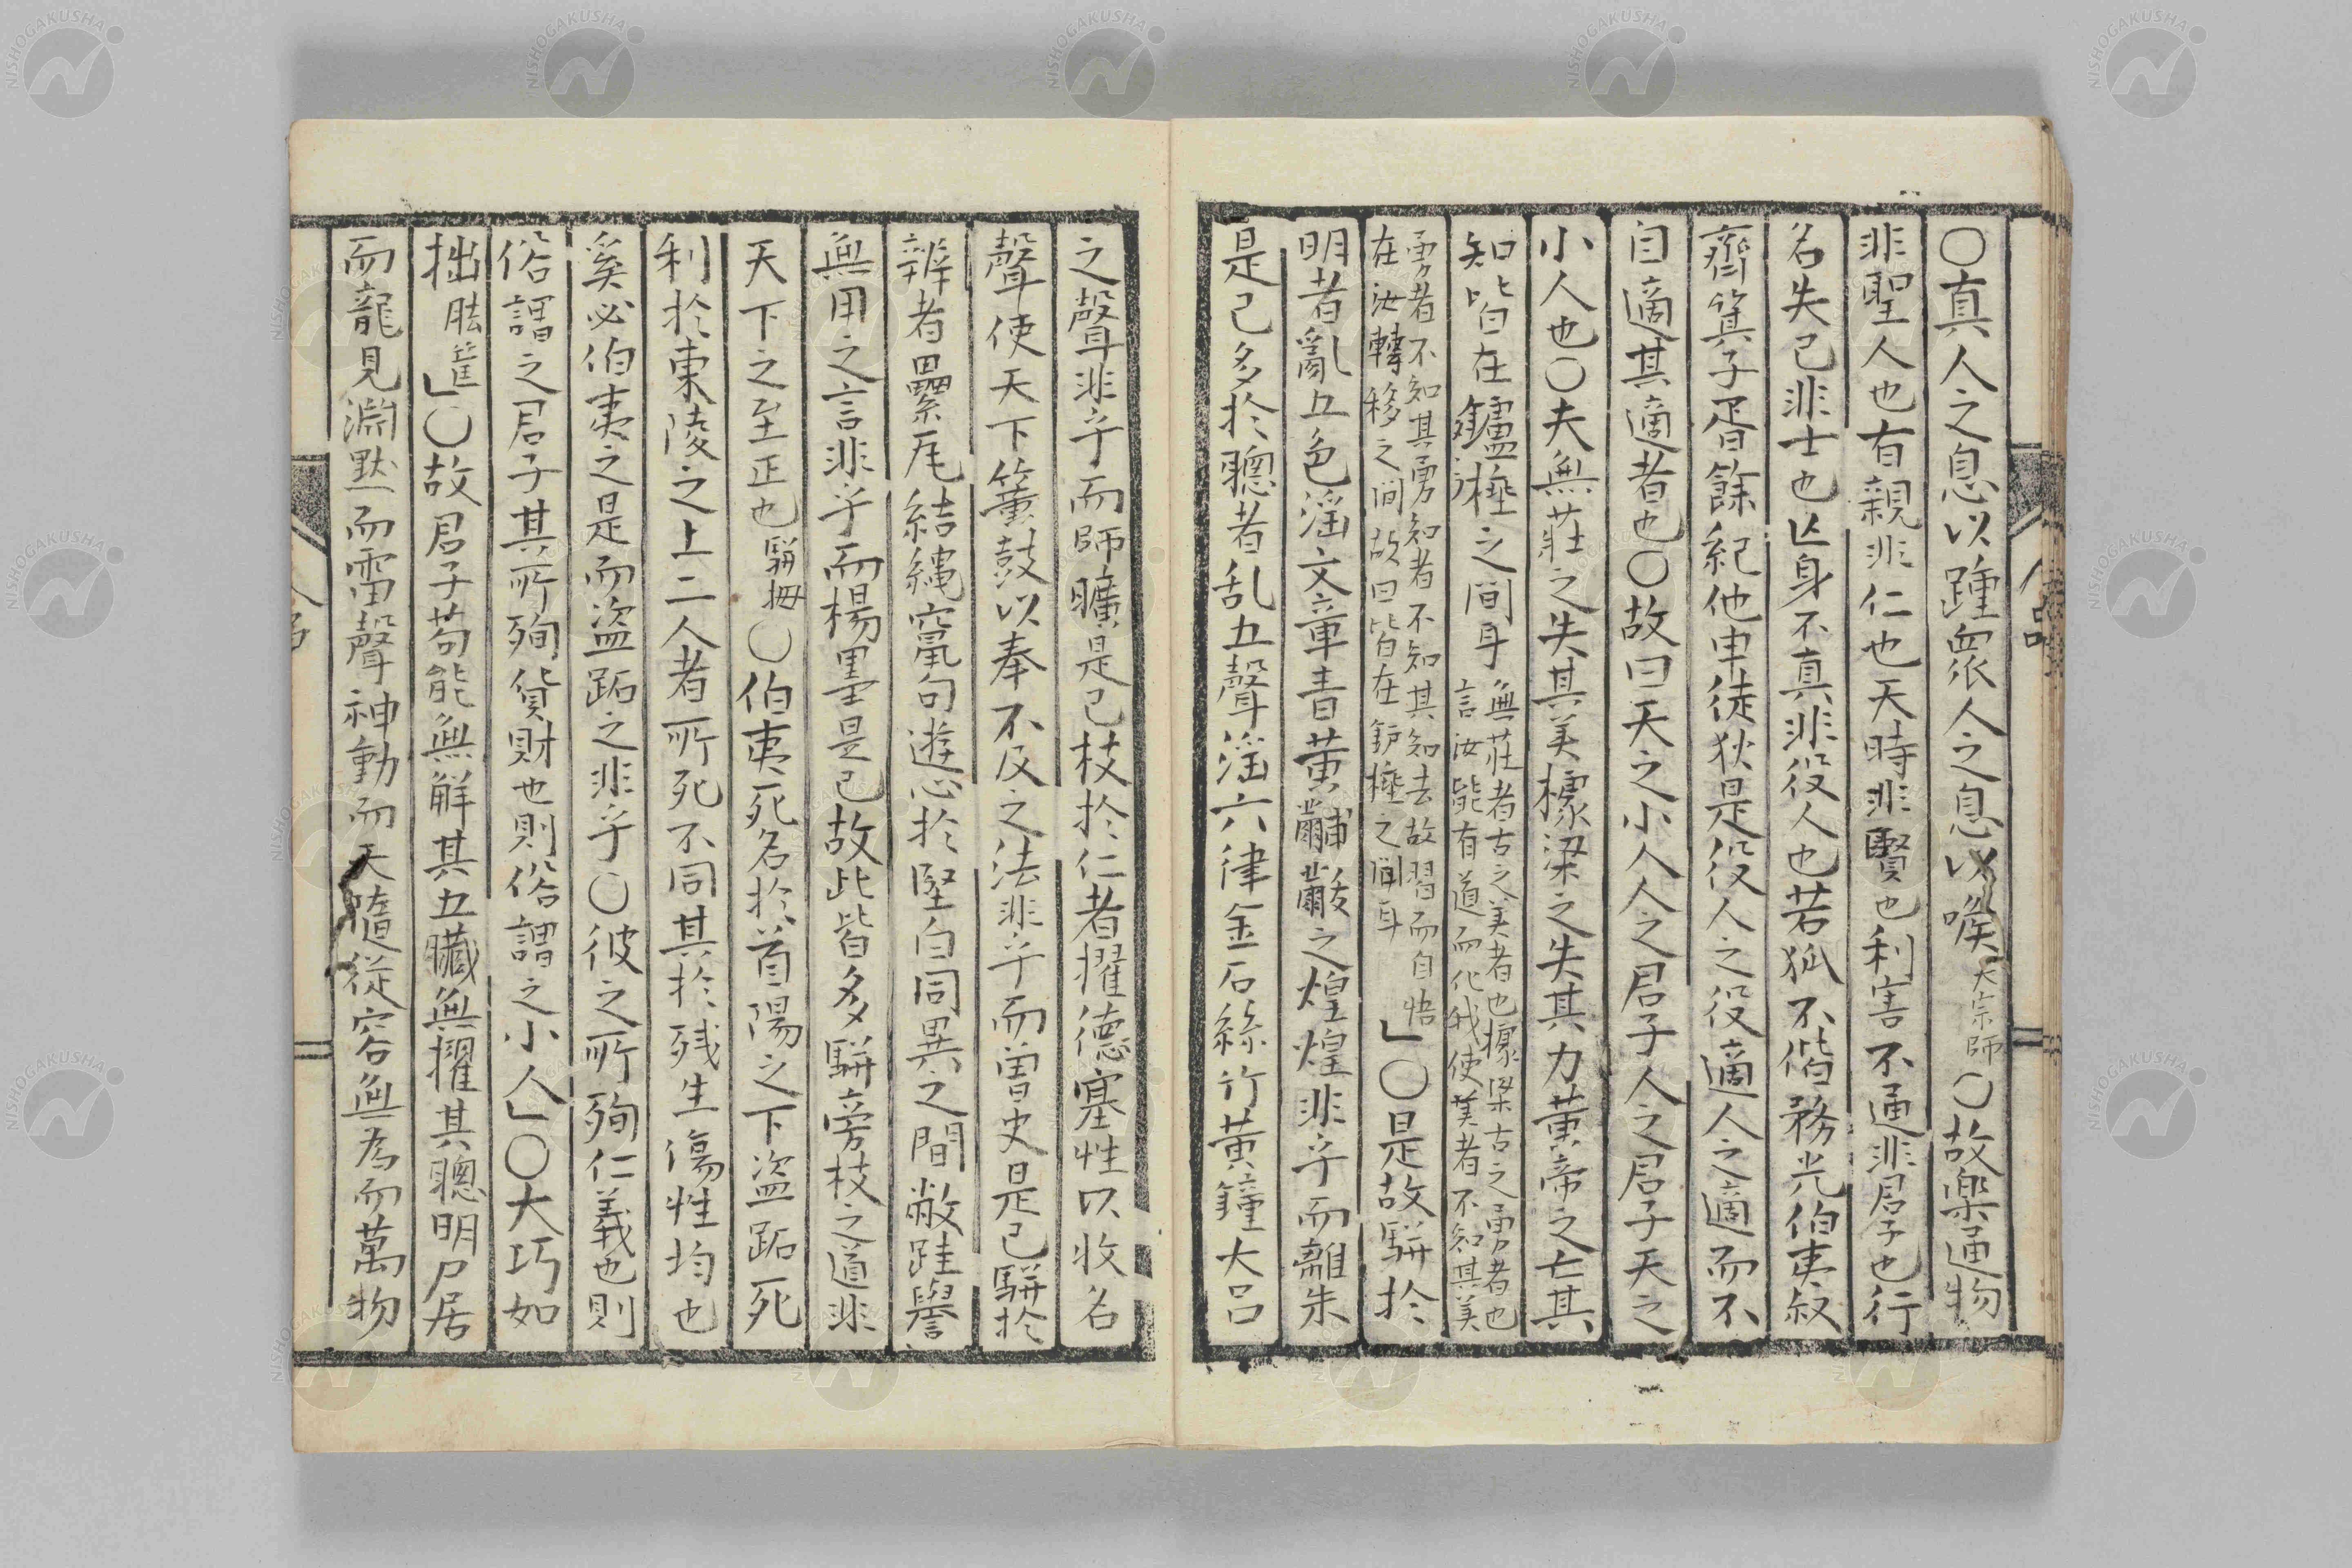 ○真人之息以踵衆人之息以喉大宗師○故楽通物
非聖人也有親非仁也天時非賢也利害不通非君子也行
名失己非士也亡身不真非役人也若狐不偕務光伯夷叔
齊箕子胥餘紀他申徒狄是役人之役適人之適而不
自適其適者也○故曰天之小人人之君子人之君子天之
小人也○夫無莊之失其美據梁之失其力黄帝之亡其
知皆在鑪捶之間耳
無莊者古之美者也據梁古之勇者也
言汝能有道而化我使美者不知其美
勇者不知其勇知者不知其知去故習而自悟
在汝轉移之间故曰皆在鈩捶之間耳
」○是故駢於
明者亂五色淫文章青黄黼黻之煌煌非乎而離朱
是已多於聰者乱五聲淫六律金石絲竹黄鐘大呂
之聲非乎而師曠是已枝於仁者擢德塞性以收名
聲使天下簧鼓以奉不及之法非乎而曽史是已駢於
辨者纍瓦結縄竄句遊心於堅白同異之間敝跬譽
無用之言非乎而楊墨是已故此皆多駢旁枝之道非
天下之至正也駢拇○伯夷死名於首陽之下盗跖死
利於東陵之上二人者所死不同其於残生傷性均也
奚必伯夷之是而盗跖之非乎○彼之所殉仁義也則
俗謂之君子其所殉貨財也則俗謂之小人」○大巧如
拙胠篋」○故君子苟能無解其五臓無擢其聰明尸居
而龍見淵黙而雷聲神動而天隨従容無為而萬物